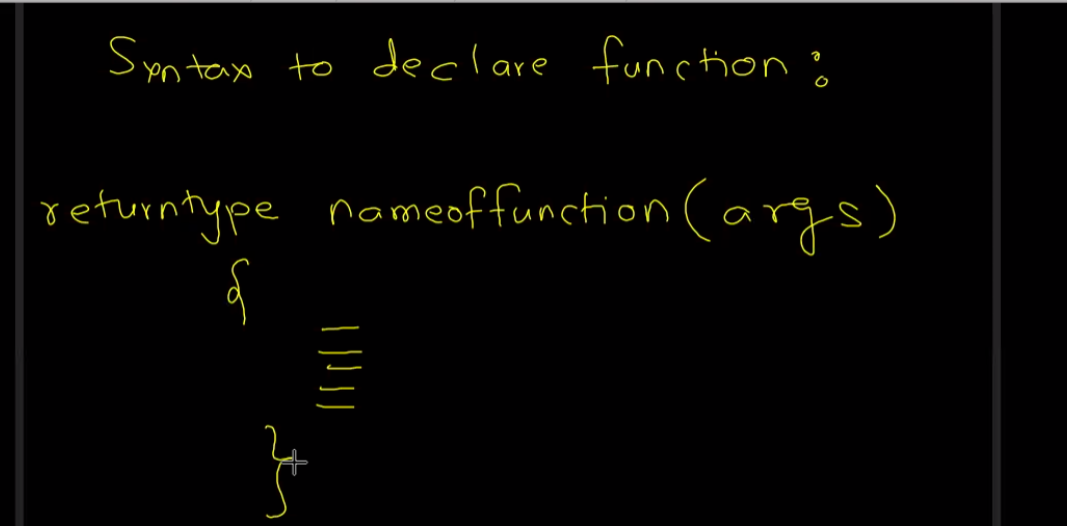 Syntax to declare function :
returntype nameoffunction(args)
{
}